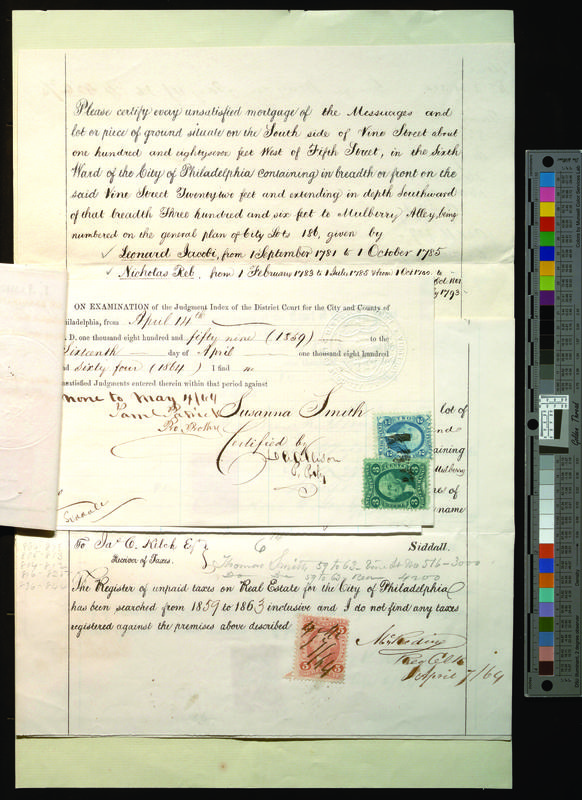 Please certify every unsatisfied mortgage of the Messuages and
lot or piece of ground situate on the South side of Vine Street about
one hundred and eightysevee feet West of Fifth Street, in the Sixth
Ward of the City of Philadelphia containing in breadth or front on the
said Vine Street Twentytwo feet and extending in depth Southward
of that breadth Three hundred and six feet to Mulberry Alley, being
numbered on the general plan of City Lots 186, given by
✓ Leonard Jacobi, from 1 September 1781 to 1 October 1785
✓ Nicholas Reb, from 1 February 1783 to 1
1793
ON EXAMINATION of the Judgment Index of the District Court for the City and County of
hiladelphia, from April 14th
D. one thousand eight hundred and fifty nine (1859) to the
Sixteenth day of April one thousand eight hundred
d sixty four (1864) I find no
nsatisfied Judgments entered therein within that period against
none to May 4/64
Susanna Smith
Certified by
lot of
aining
Mulberry
es of
name
Siddall
To Jas. C. Kelch Esq.
Receiver of Taxes.
Siddall.
Thomas Smith 59 to 63 Vine St No 516 - 3000
4200
The Register of unpaid taxes on Real Estate for the City of Philadelphia
has been searched from 1859 to 1863 inclusive and I do not find any taxes
registered against the premises above described
Reg Clk
April 7/64